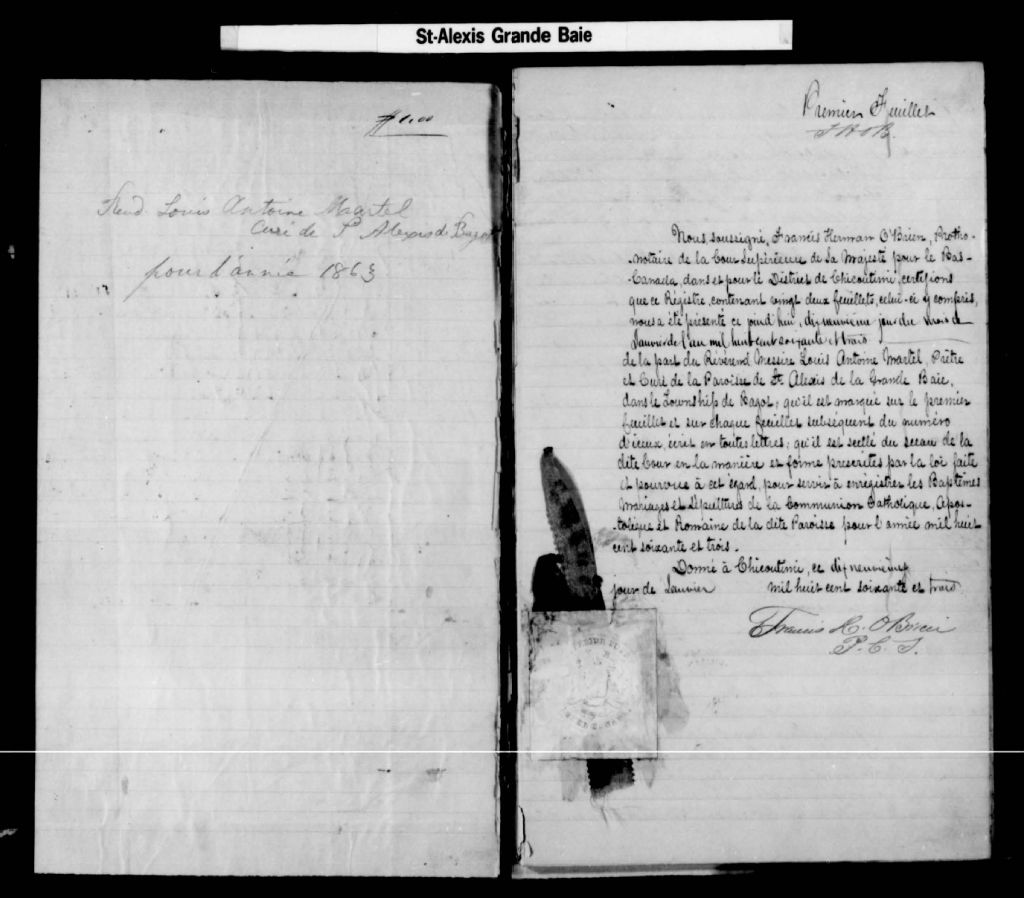 St-Alexis Grande Baie
Revd. Louis Antoine Martel
Curé de St Alexis de Bagot
pour l'année 1863
Premier Feuillet
F H O'B.
Nous, soussigné, Francis Herman O'Brien, Protho-
-notaire de la Cour Supérieure de Sa Majesté pour le Bas-
-Canada, dans et pour le District de Chicoutimi, certifions
que ce Régistre, contenant vingt deux feuillets, celui-ci y compris,
nous a été présenté ce jourd'hui, dix neuvième jour du mois de
Janvier de l'an mil huit cent soixante et trois
de la part du Révérend Messire Louis Antoine Martel, Prêtre
et Curé de la Paroisse de St. Alexis de la Grande Baie,
dans le Township de Bagot; qu'il est marqué sur le premier
feuillet et sur chaque feuillet subséquent du numéro
d'iceux, écrit en toutes lettres; qu'il est scellé du sceau de la
dite Cour en la manière et forme prescrites par la loi faite
et pourvue à cet égard, pour servir à enrégistrer les Baptêmes
Mariages et Sépultures de la Communion Catholique, Apos-
-tolique et Romaine de la dite Paroisse pour l'année mil huit
cent soixante et trois.
Donné à Chicoutimi, ce dix neuvième
jour de Janvier mil huit cent soixante et trois
Francis H. O'Brien
P. C. S.